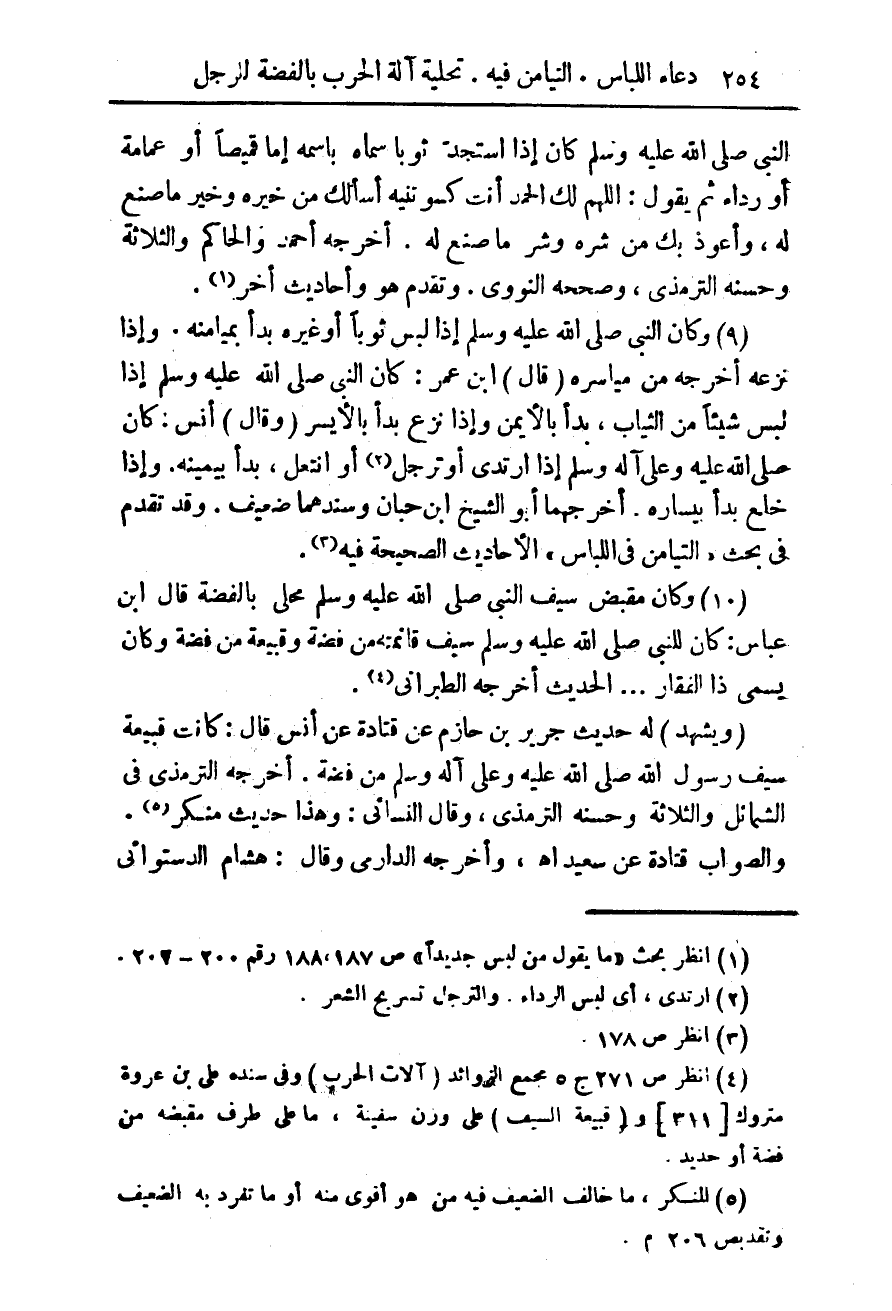 ٢٥٤ دعاء اللباس . التيامن فيه . تحلية آلة الحرب بالفضة للرجل
النبى صلى الله عليه وسلم كان إذا استجد ثوبا سماه باسمه إما قميصاً أو عمامة
أو رداء ثم يقول : اللهم لك الحمد أنت كسوتنيه أسألك من خيره وخير ماصنع
له ، وأعوذ بك من شره وشر ماصنع له . أخرجه أحمد والحاكم والثلاثة
وحسنه الترمذى ، وصححه النووى . وتقدم هو وأحاديث أخر(١) .
(٩) وكان النبى صلى الله عليه وسلم إذا لبس ثوباً أوغيره بدأ بميامنه . وإذا
نزعه أخرجه من مياسره (قال) ابن عمر : كان النبى صلى الله عليه وسلم إذا
لبس شيئاً من الثياب ، بدأ بالأيمن وإذا نزع بدأ بالأيسر (وقال) أنس : كان
صلى الله عليه وعلى آله وسلم إذا ارتدى أوترجل(٢) أو انتعل ، بدأ بيمينه. وإذا
خلع بدأ بيساره . أخرجهما أبو الشيخ ابن حبان وسندهما ضعيف . وقد تقدم
فى بحث « التيامن فى اللباس » الأحاديث الصحيحة فيه(٣).
(١٠) وكان مقبض سيف النبى صلى الله عليه وسلم محلى بالفضة قال ابن
عباس: كان للنبى صلى الله عليه وسلم سيف قائمته من فضة وقبيعة من فضة وكان
يسمى ذا الفقار ... الحديث أخرجه الطبرانى(٤) .
(ويشهد) له حديث جرير بن حازم عن قتادة عن أنس قال : كانت قبيعة
سيف رسول الله صلى الله عليه وعلى آله وسلم من فضة . أخرجه الترمذى فى
الشمائل والثلاثة وحسنه الترمذى ، وقال النسائى : وهذا حديث منكر(٥) .
والصواب قتادة عن سعيد اه ، وأخرجه الدارمى وقال : هشام الدستوائى
(١) انظر بحث «ما يقول من لبس جديداً» ص ١٨٧،١٨٨ رقم ٢٠٠ – ٢٠٢ .
(٢) ارتدى ، أى لبس الرداء . والترجل تسريح الشعر .
(٣) انظر ص ١٧٨ .
(٤) انظر ص ٢٧١ ج ٥ مجمع الزوائد (آلات الحرب) وفى سنده على بن عروة
متروك [٣١١] و (قبيعة السيف) على وزن سفينة ، ماعلى طرف مقبضه من
فضة أو حديد .
(٥) المنكر ، ما خالف الضعيف فيه من هو أقوى منه أو ما تفرد به الضعيف
وتقدم ص ٢٠٦ م .